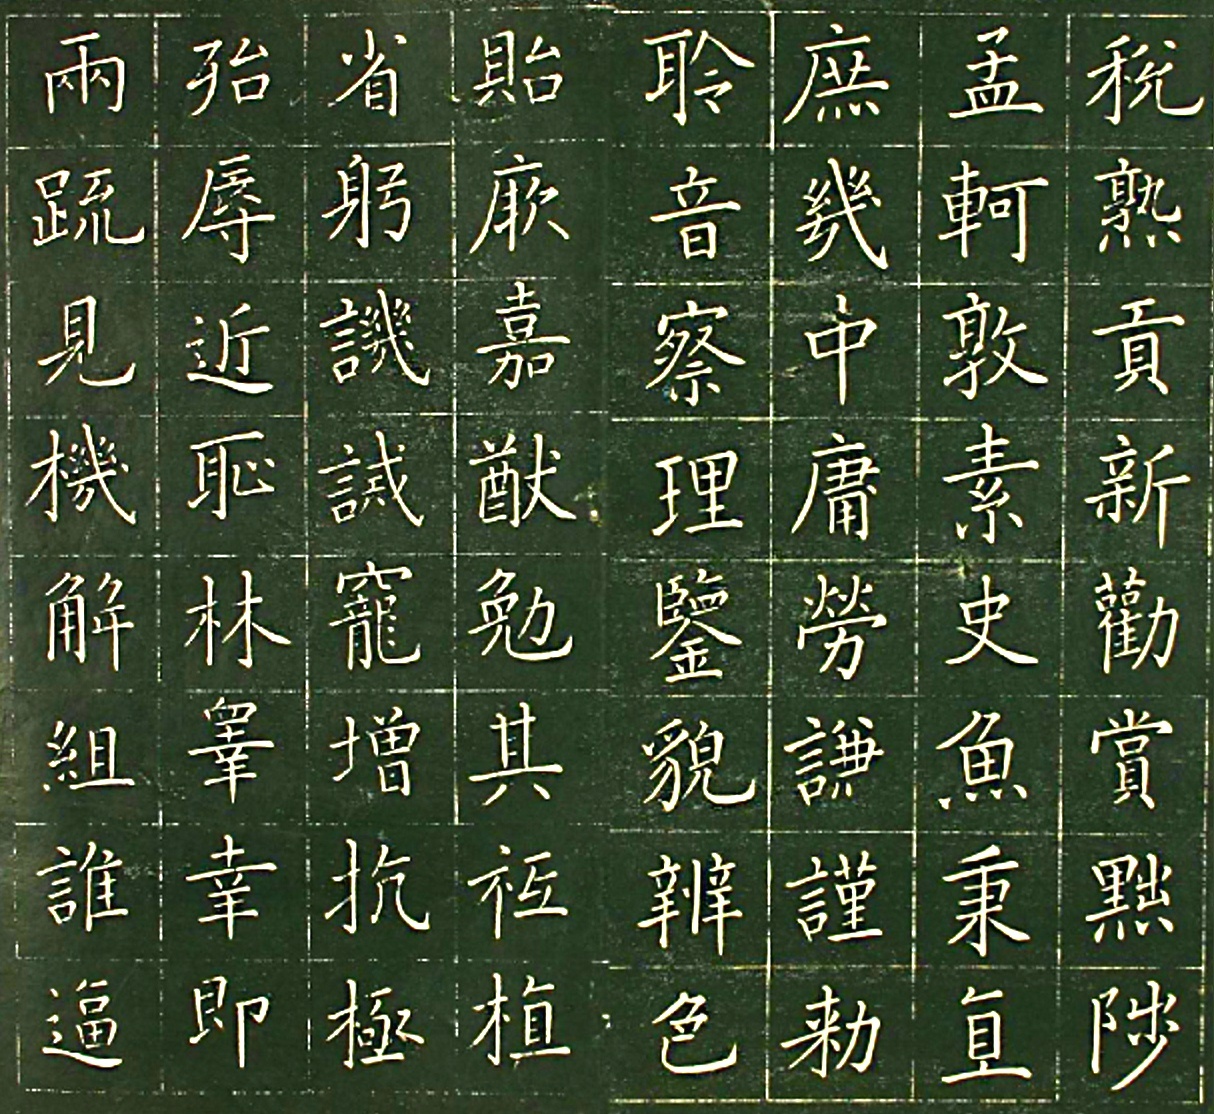 稅熟貢新勸賞黜陟
孟軻敦素史魚秉直
庶幾中庸勞謙謹勑
聆音察理鑒貌辨色
貽厥嘉猷勉其祗植
省躬譏誡寵增抗極
殆辱近恥林睾幸即
兩疏見機解組誰逼